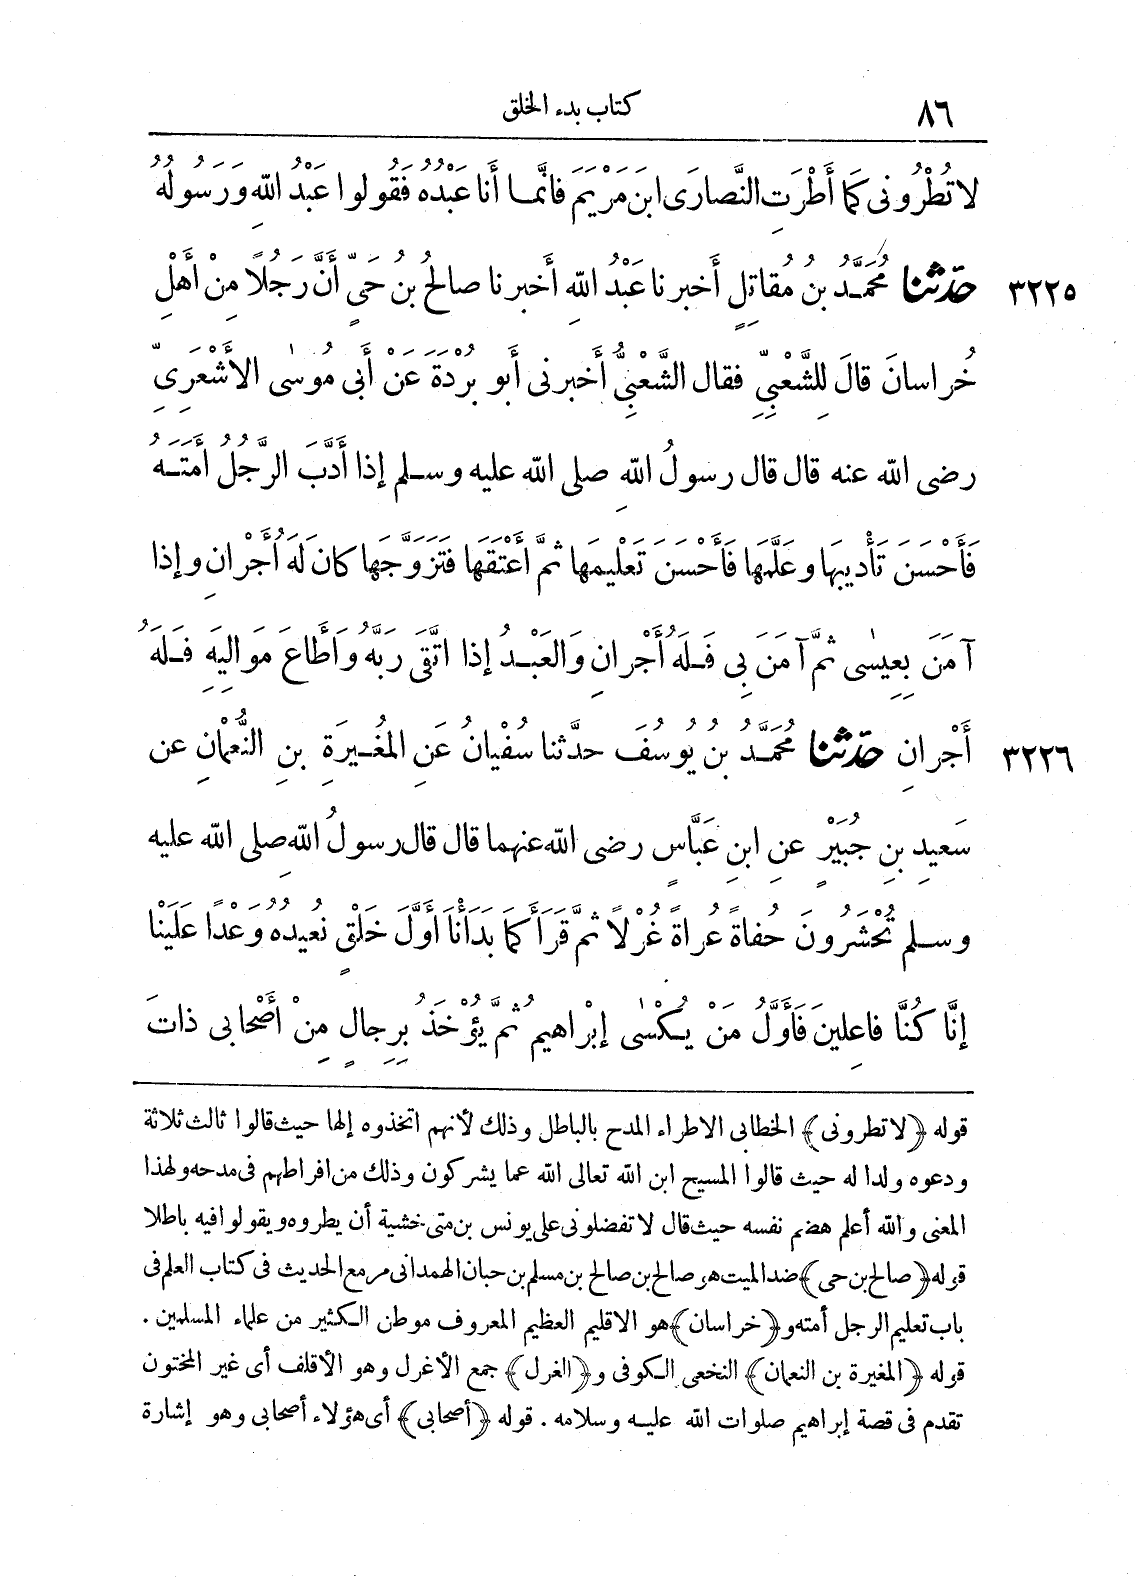 ٨٦ كتاب بدء الخلق
لا تُطْرُونى كَمَا أَطْرَتِ النَّصَارَى ابنَ مَرْيَمَ فَانَّمَا أَنَا عَبْدُهُ فَقُولُوا عَبْدُ اللهِ وَرَسُولُهُ
٣٢٢٥ حدّثنا مُحَمَّدُ بنُ مُقَاتِلٍ أَخبرنا عَبْدُ اللهِ أَخبرنا صالحُ بنُ حَىٍّ أَنَّ رَجُلًا مِنْ أَهْلِ
خُراسانَ قالَ لِلشَّعْبِىِّ فقال الشَّعْبِىُّ أَخبرنى أَبو بُرْدَةَ عَنْ أَبى مُوسٰى الأَشْعَرِىِّ
رضى الله عنه قال قال رسولُ اللهِ صلى الله عليه وسلم إذا أَدَّبَ الرَّجُلُ أَمَتَهُ
فَأَحْسَنَ تَأْدِيبَهَا وعَلَّمَهَا فَأَحْسَنَ تَعْلِيمَهَا ثمَّ أَعْتَقَهَا فَتَزَوَّجَها كانَ لَهُ أَجْرانِ وإذا
آمَنَ بِعِيسٰى ثمَّ آمَنَ بِى فَلَهُ أَجْرانِ وَالعَبْدُ إذا اتَّقَى رَبَّهُ وَأَطَاعَ مَوَالِيَهِ فَلَهُ
٣٢٢٦ أَجْرانِ حدّثنا مُحَمَّدُ بنُ يُوسُفَ حدَّثنا سُفْيانُ عَنِ المُغِيرَةِ بنِ النُّعْمانِ عن
سَعِيدِ بنِ جُبَيْرٍ عنِ ابنِ عَبَّاسٍ رضى الله عنهما قال قال رسولُ اللهِ صلى الله عليه
وسلم تُحْشَرُونَ حُفاةً عُراةً غُرْلًا ثمَّ قَرَأَ كَمَا بَدَأْنَا أَوَّلَ خَلْقٍ نُعيدُهُ وَعْدًا عَلَيْنَا
إِنَّا كُنَّا فاعِلينَ فَأَوَّلُ مَنْ يُكْسٰى إِبْراهيمُ ثُمَّ يُؤْخَذُ بِرِجالٍ مِنْ أَصْحابى ذاتَ
قوله ﴿لا تطرونى﴾ الخطابى الاطراء المدح بالباطل وذلك لأنهم اتخذوه إلها حيث قالوا ثالث ثلاثة
ودعوه ولدا له حيث قالوا المسيح ابن الله تعالى الله عما يشركون وذلك من افراطهم فى مدحه ولهذا
المعنى والله أعلم هضم نفسه حيث قال لا تفضلونى على يونس بن متى خشية أن يطروه ويقولوا فيه باطلا
قوله ﴿صالح بن حى﴾ ضد الميت هو صالح بن صالح بن مسلم بن حبان الهمدانى مر مع الحديث فى كتاب العلم فى
باب تعليم الرجل أمته و﴿خراسان﴾ هو الاقليم العظيم المعروف موطن الكثير من علماء المسلمين .
قوله ﴿المغيرة بن النعمان﴾ النخعى الكوفى و﴿الغرل﴾ جمع الأغرل وهو الأقلف أى غير المختون
تقدم فى قصة إبراهيم صلوات الله عليه وسلامه . قوله ﴿أصحابى﴾ أى هؤلاء أصحابى وهو إشارة